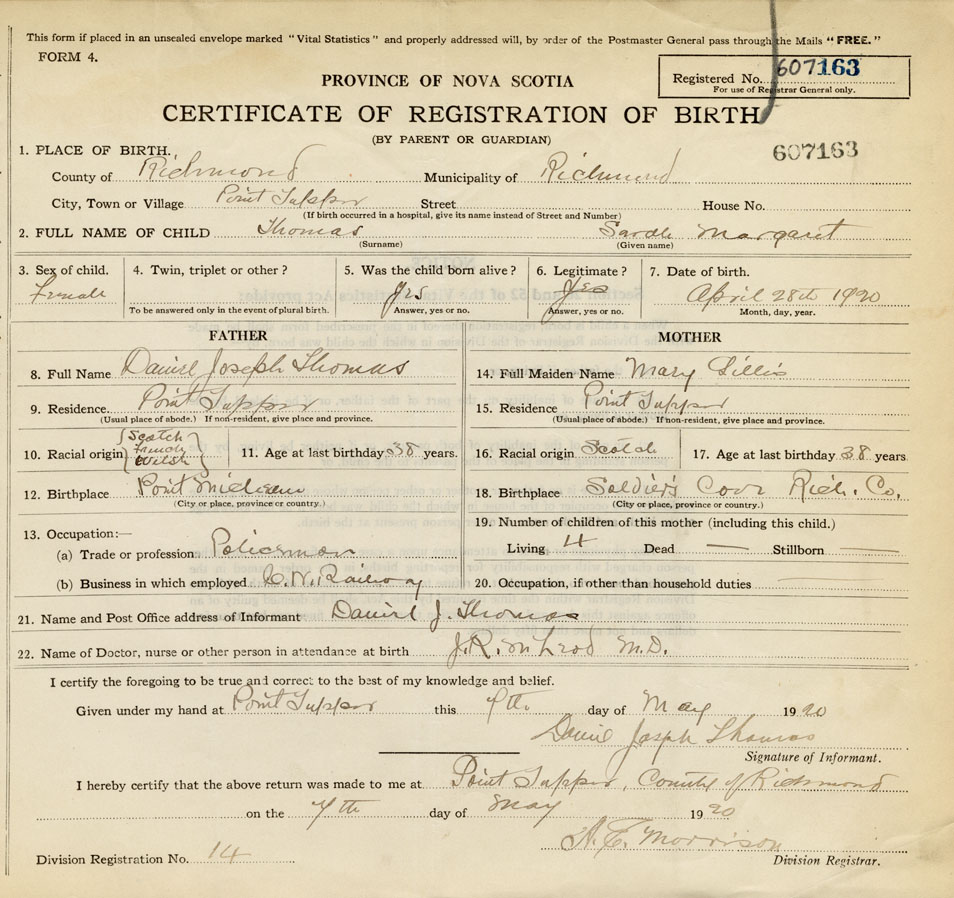 This form if placed in an unsealed envelope marked "Vital Statistics" and properly addressed will, by order of the Postmaster General pass through the Mails "FREE."
FORM 4.
Registered No. 607163
For use of Registrar General only.
PROVINCE OF NOVA SCOTIA
CERTIFICATE OF REGISTRATION OF BIRTH
(BY PARENT OR GUARDIAN)
607163
1. PLACE OF BIRTH.
County of Richmond Municipality of Richmond
City, Town or Village Point Tupper Street House No.
(If birth occurred in a hospital, give its name instead of Street and Number)
2. FULL NAME OF CHILD Thomas Sarah Margaret
(Surname) (Given name)
3. Sex of child. 4. Twin, triplet or other? 5. Was the child born alive? 6. Legitimate? 7. Date of birth.
Female Yes Yes April 28th 1920
To be answered only in the event of plural birth. Answer, yes or no. Answer, yes or no. Month, day, year.
FATHER
8. Full Name Daniel Joseph Thomas
9. Residence. Point Tupper
(Usual place of abode.) If non-resident, give place and province.
10. Racial origin Scotch French Welsh 11. Age at last birthday 38 years.
12. Birthplace Point
(City or place, province or country.)
13. Occupation:—
(a) Trade or profession Policeman
(b) Business in which employed C.N. Railway
MOTHER
14. Full Maiden Name Mary Lillis
15. Residence Point Tupper
(Usual place of abode.) If non-resident, give place and province.
16. Racial origin Scotch 17. Age at last birthday 38 years
18. Birthplace Soldier's Cove Rich. Co.
(City or place, province or country.)
19. Number of children of this mother (including this child.)
Living 4 Dead — Stillborn —
20. Occupation, if other than household duties
21. Name and Post Office address of Informant Daniel J. Thomas
22. Name of Doctor, nurse or other person in attendance at birth J.R. McLeod M.D.
I certify the foregoing to be true and correct to the best of my knowledge and belief.
Given under my hand at Point Tupper this day of May 1920
Daniel Joseph Thomas
Signature of Informant.
I hereby certify that the above return was made to me at Point Tupper, County of Richmond
on the day of May 1920
A.C. Morrison
Division Registration No. 14 Division Registrar.